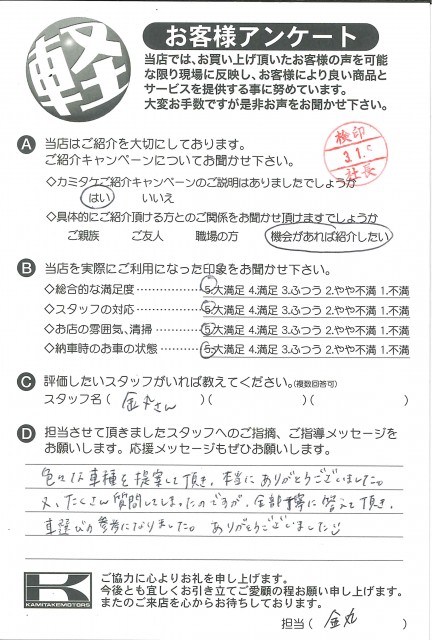 軽
お客様アンケート
当店では、お買い上げ頂いたお客様の声を可能
な限り現場に反映し、お客様により良い商品と
サービスを提供する事に努めています。
大変お手数ですが是非お声をお聞かせ下さい。
A 当店はご紹介を大切にしております。
ご紹介キャンペーンについてお聞かせ下さい。
検印
3.1.
社長
◇カミタケご紹介キャンペーンのご説明はありましたでしょうか
はい いいえ
◇具体的にご紹介頂ける方とのご関係をお聞かせ頂けますでしょうか
ご親族 ご友人 職場の方 機会があれば紹介したい
B 当店を実際にご利用になった印象をお聞かせ下さい。
◇総合的な満足度 ……………… 5.大満足 4.満足 3.ふつう 2.やや不満 1.不満
◇スタッフの対応 ……………… 5.大満足 4.満足 3.ふつう 2.やや不満 1.不満
◇お店の雰囲気、清掃 ………… 5.大満足 4.満足 3.ふつう 2.やや不満 1.不満
◇納車時のお車の状態 ………… 5.大満足 4.満足 3.ふつう 2.やや不満 1.不満
C 評価したいスタッフがいれば教えてください。(複数回答可)
スタッフ名 ( 金丸さん )( )( )
D 担当させて頂きましたスタッフへのご指摘、ご指導メッセージを
お願いします。応援メッセージもぜひお願いします。
色々な車種を提案して頂き、本当にありがとうございました。
又、たくさん質問してしまったのですが、全部丁寧に答えて頂き、
車選びの参考になりました。ありがとうございました
K
KAMITAKEMOTORS
ご協力に心よりお礼を申し上げます。
今後とも宜しくお引き立てご愛顧の程お願い申し上げます。
またのご来店を心からお待ちしております。
担当 ( 金丸 )